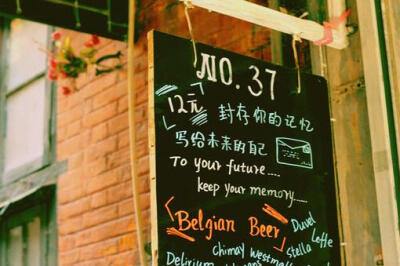 NO. 37
12元
封存你的记忆
写给未来的自己
To your future....
keep your memory.....
Belgian Beer
Duvel
Leffe
chimay Westmalle
Stella
Delirium